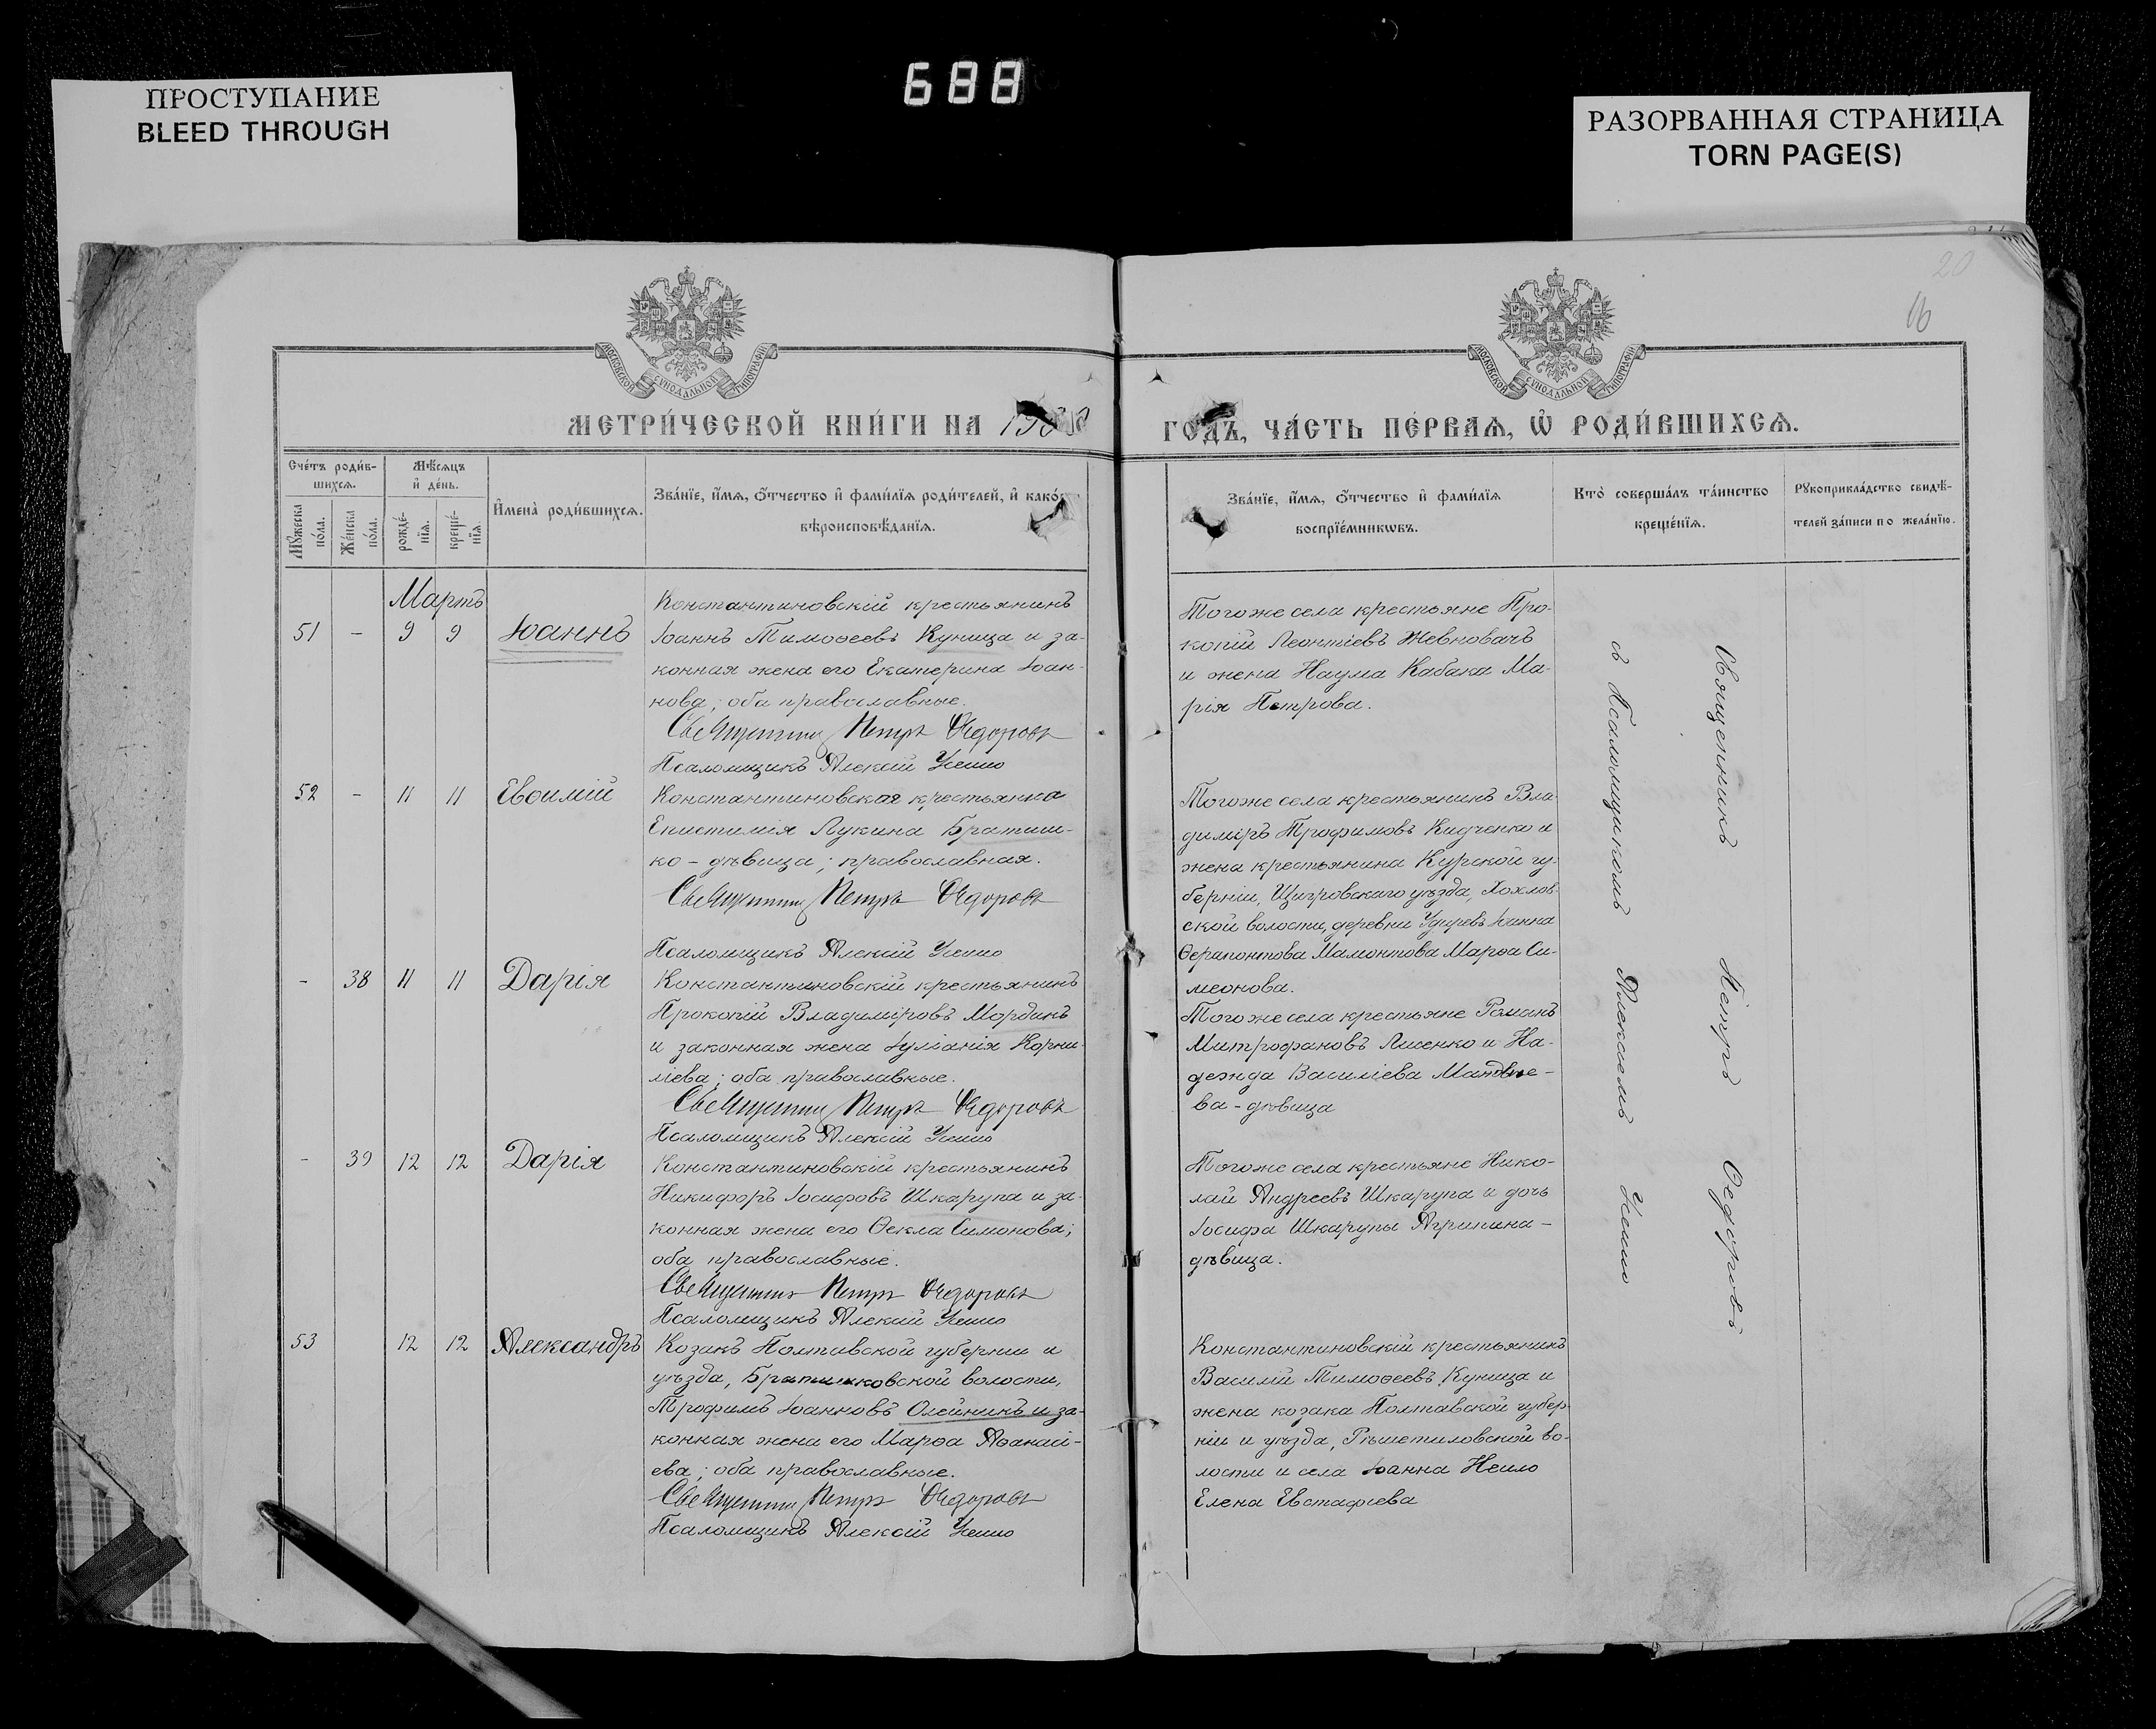 688
ПРОСТУПАНИЕ
BLEED THROUGH
РАЗОРВАННАЯ СТРАНИЦА
TORN PAGE(S)
20
16
МОСКОВСКОЙ СУНОДАЛЬНОЙ ТИПОГРАФІИ
МОСКОВСКОЙ СУНОДАЛЬНОЙ ТИПОГРАФІИ
МЕТРИ́ЧЕСКОЙ КНИ́ГИ НА
ГОДЪ, ЧА́СТЬ ПЕ́РВАѦ, Ѡ РОДИ́ВШИХСѦ.
Сче́тъ роди́в-
шихсѧ.
Мѣ́сѧцъ
и҆ де́нь.
Мꙋ́жеска
по́ла.
Же́нска
по́ла.
рожде́-
нїѧ.
креще́-
нїѧ.
И҆мена̀ роди́вшихсѧ.
Зва́нїе, и҆́мѧ, ѻ҆́тчество и҆ фами́лїѧ роди́телей, и҆ како́
вѣроисповѣ́данїѧ.
Зва́нїе, и҆́мѧ, ѻ҆́тчество и҆ фами́лїѧ
воспрїе́мникѡвъ.
Кто̀ соверша́лъ та́инство
креще́нїѧ.
Рꙋкоприкла́дство свидѣ́-
телей за́писи по жела́нїю.
Мартъ
51 - 9 9 Іоаннъ
Константиновскій крестьянинъ
Іоаннъ Тимофеевъ Куница и за-
конная жена его Екатерина Іоан-
нова; оба православные.
Священникъ Петръ Ѳедоровъ
Псаломщикъ Алексій
Тогоже села крестьяне Про-
копій Леонтіевъ Жевновачъ
и жена Наума Кабака Ма-
рія Петрова.
52 - 11 11 Евѳимій
Константиновская крестьянка
Епистимія Лукина Братиш-
ко - дѣвица; православная.
Священникъ Петръ Ѳедоровъ
Псаломщикъ Алексій
Тогоже села крестьянинъ Вла-
диміръ Трофимовъ Кидченко и
жена крестьянина Курской гу-
берніи, Щигровскаго уѣзда, Хохлов-
ской волости, деревни Іоанна
Ѳерапонтова Мамонтова Марѳа Си-
меонова.
- 38 11 11 Дарія
Константиновскій крестьянинъ
Прокопій Владиміровъ Мордикъ
и законная жена Іуліанія Корни-
ліева; оба православные.
Священникъ Петръ Ѳедоровъ
Псаломщикъ Алексій
Тогоже села крестьяне Романъ
Митрофановъ Лисенко и На-
дежда Василіева
ва - дѣвица
- 39 12 12 Дарія
Константиновскій крестьянинъ
Никифоръ Іосифовъ Шкарупа и за-
конная жена его Ѳекла Симонова;
оба православные.
Священникъ Петръ Ѳедоровъ
Псаломщикъ Алексій
Тогоже села крестьяне Нико-
лай Андреевъ Шкарупа и дочь
Іосифа Шкарупы Агрипина -
дѣвица.
53 12 12 Александръ
Козакъ Полтавской губерніи и
уѣзда, Братешковской волости,
Трофимъ Іоанновъ Олейникъ и за-
конная жена его Марѳа Аѳанасі-
ева; оба православные.
Священникъ Петръ Ѳедоровъ
Псаломщикъ Алексій
Константиновскій крестьянинъ
Василій Тимофеевъ Куница и
жена козака Полтавской губер-
ніи и уѣзда, Рѣшетиловской во-
лости и села Іоанна
Елена Евстафіева
Священникъ Петръ Ѳедоровъ
съ Псаломщикомъ Алексіемъ